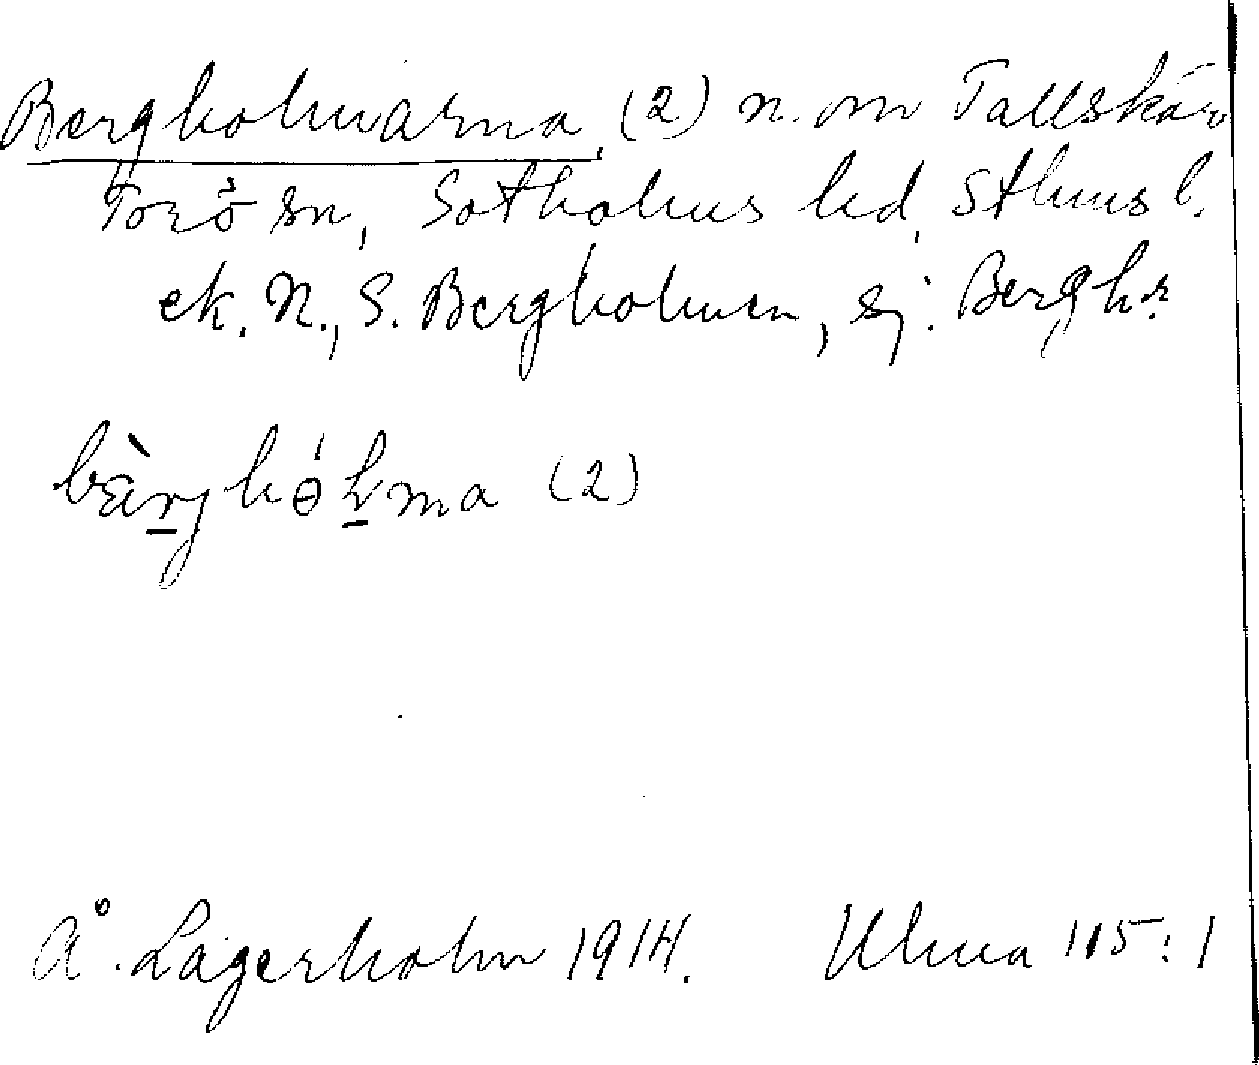 Bergholmarna, (2) n. om Tallskär
Torö sn, Sotholms hd, Sthms l.
ek. N., S. Bergholmen, sj. Bergh:
bàrjhólma (2)
Å. Lagerholm 1914. Ulma 115:1